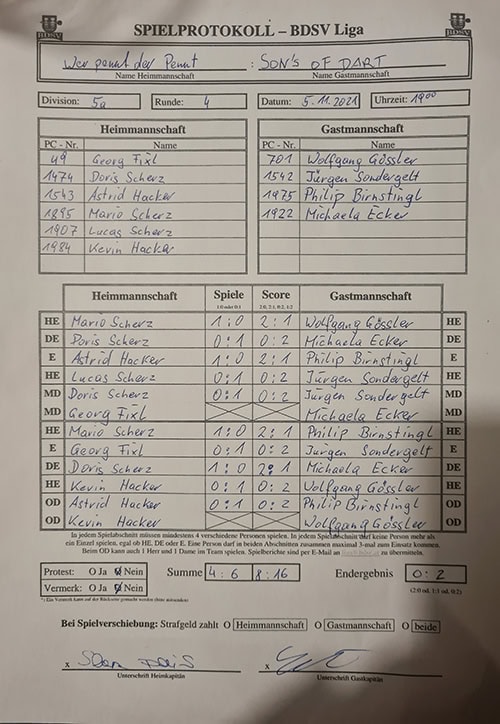 SPIELPROTOKOLL – BDSV Liga
BDSV BDSV
Wer pennt der Pennt : SON'S OF DART
Name Heimmannschaft Name Gastmannschaft
Division: 5a Runde: 4 Datum: 5.11.2021 Uhrzeit: 1900
Heimmannschaft Gastmannschaft
PC - Nr. Name PC - Nr. Name
49 Georg Fixl 701 Wolfgang Gössler
1474 Doris Scherz 1542 Jürgen Sondergelt
1543 Astrid Hacker 1975 Philip Birnstingl
1895 Mario Scherz 1922 Michaela Ecker
1907 Lucas Scherz
1984 Kevin Hacker
Heimmannschaft Spiele Score Gastmannschaft
1:0 oder 0:1 2:0, 2:1, 0:2, 1:2
HE Mario Scherz 1:0 2:1 Wolfgang Gössler HE
DE Doris Scherz 0:1 0:2 Michaela Ecker DE
E Astrid Hacker 1:0 2:1 Philip Birnstingl E
HE Lucas Scherz 0:1 0:2 Jürgen Sondergelt HE
MD Doris Scherz 0:1 0:2 Jürgen Sondergelt MD
MD Georg Fixl Michaela Ecker MD
HE Mario Scherz 1:0 2:1 Philip Birnstingl HE
E Georg Fixl 0:1 0:2 Jürgen Sondergelt E
DE Doris Scherz 1:0 2:1 Michaela Ecker DE
HE Kevin Hacker 0:1 0:2 Wolfgang Gössler HE
OD Astrid Hacker 0:1 0:2 Philip Birnstingl OD
OD Kevin Hacker Wolfgang Gössler OD
In jedem Spielabschnitt müssen mindestens 4 verschiedene Personen spielen. In jedem Spielabschnitt darf keine Person mehr als
ein Einzel spielen, egal ob HE, DE oder E. Eine Person darf in beiden Abschnitten zusammen maximal 3-mal zum Einsatz kommen.
Beim OD kann auch 1 Herr und 1 Dame im Team spielen. Spielberichte sind per E-Mail an zu übermitteln.
Protest: O Ja O Nein Summe 4:6 8:16 Endergebnis 0:2
Vermerk: O Ja O Nein (2:0 od. 1:1 od. 0:2)
*: Ein Vermerk kann auf der Rückseite gemacht werden
Bei Spielverschiebung: Strafgeld zahlt O Heimmannschaft O Gastmannschaft O beide
x x
Unterschrift Heimkapitän Unterschrift Gastkapitän